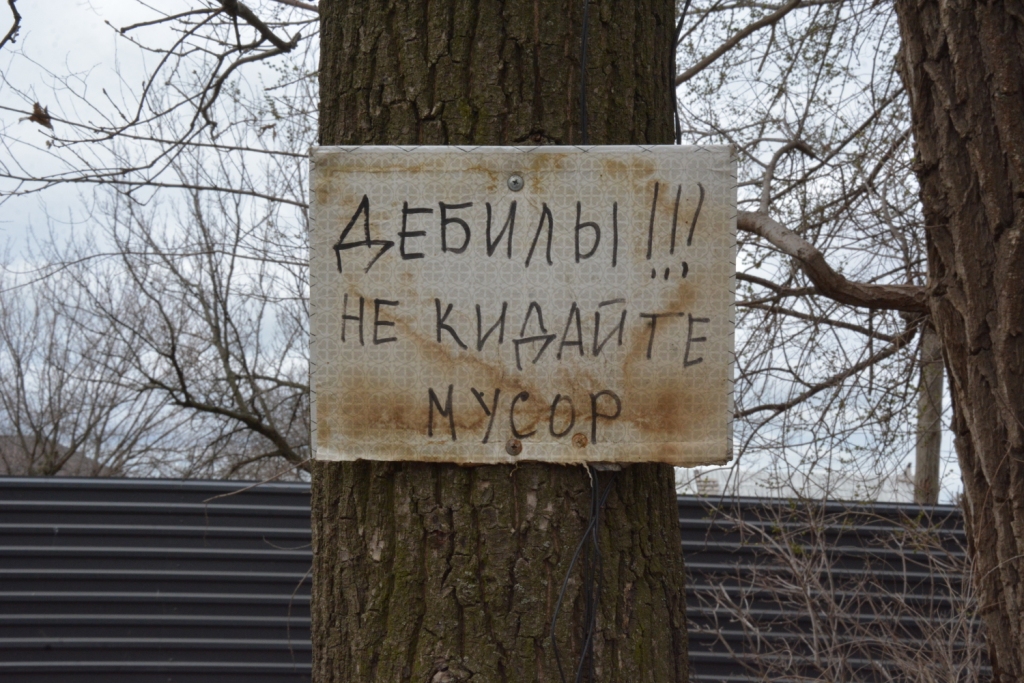 ДЕБИЛЫ!!!
НЕ КИДАЙТЕ
МУСОР